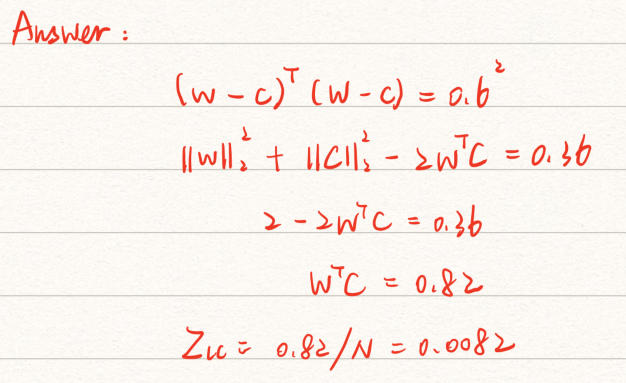 Answer:
(w - c)ᵀ (w - c) = 0.6²
||w||₂² + ||c||₂² - 2wᵀc = 0.36
2 - 2wᵀc = 0.36
wᵀc = 0.82
Zwc = 0.82/N = 0.0082